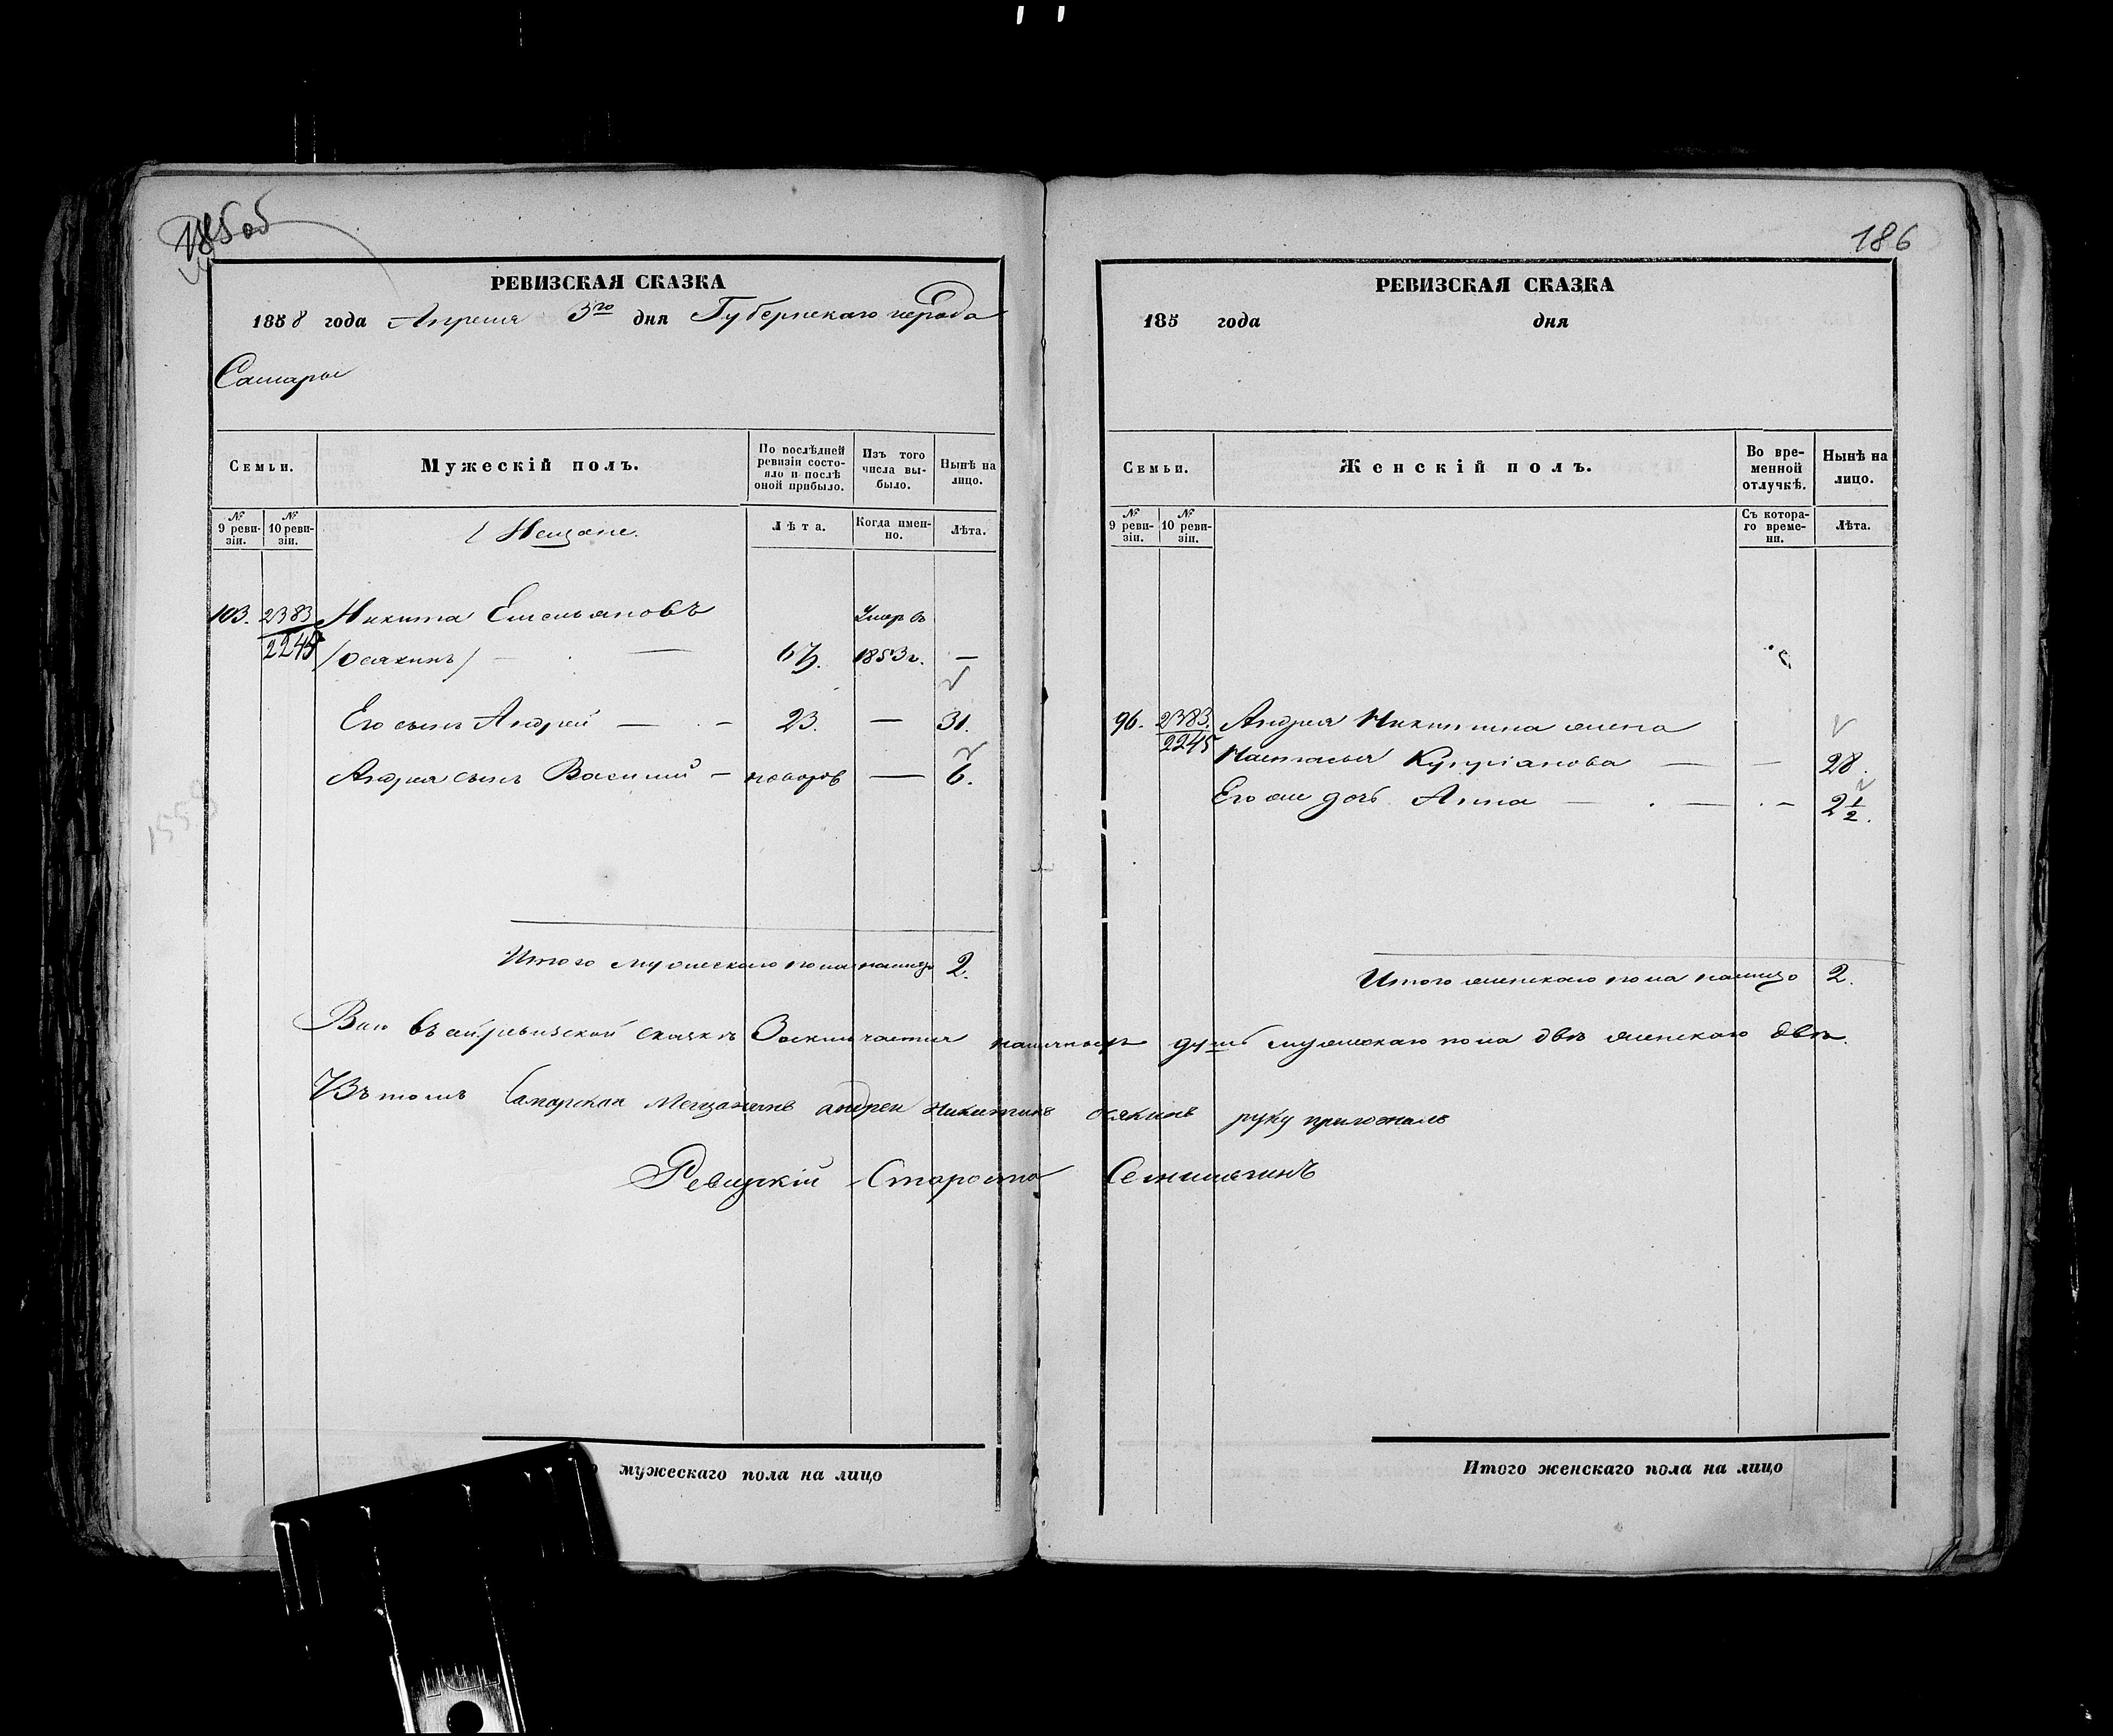 185об
РЕВИЗСКАЯ СКАЗКА
1858 года Апреля 3го дня Губернскаго города
Самары
Семьи.
Мужескій полъ.
По послѣдней ревизіи состояло и послѣ оной прибыло.
Изъ того числа выбыло.
Нынѣ на лицо.
№ 9 ревизіи.
№ 10 ревизіи.
Мещане.
Лѣта.
Когда именно.
Лѣта.
103. 2383 Никита Емельяновъ Умеръ въ
2245 (Осякинъ) — — 67. 1853 г. —
Его сынъ Андрей — — 23. — 31.
Андрея сынъ Василий — новорож — 6.
Итого мужескаго пола налицо 2.
186
РЕВИЗСКАЯ СКАЗКА
185 года дня
Семьи.
Женскій полъ.
Во временной отлучкѣ.
Нынѣ на лицо.
№ 9 ревизіи.
№ 10 ревизіи.
Съ котораго времени.
Лѣта.
96. 2383. Андрея Никитина жена
2245 Настасья Купріанова — — 28.
Его же дочь Анна — — — 2 1/2.
Итого женскаго пола налицо 2.
Всего въ сей ревизской сказкѣ Заключается наличныхъ душъ мужескаго пола двѣ женскаго двѣ.
Въ томъ Самарской Мещанинъ андрей Никитинъ осякинъ руку приложилъ
Ревизкій Староста
мужескаго пола на лицо
Итого женскаго пола на лицо